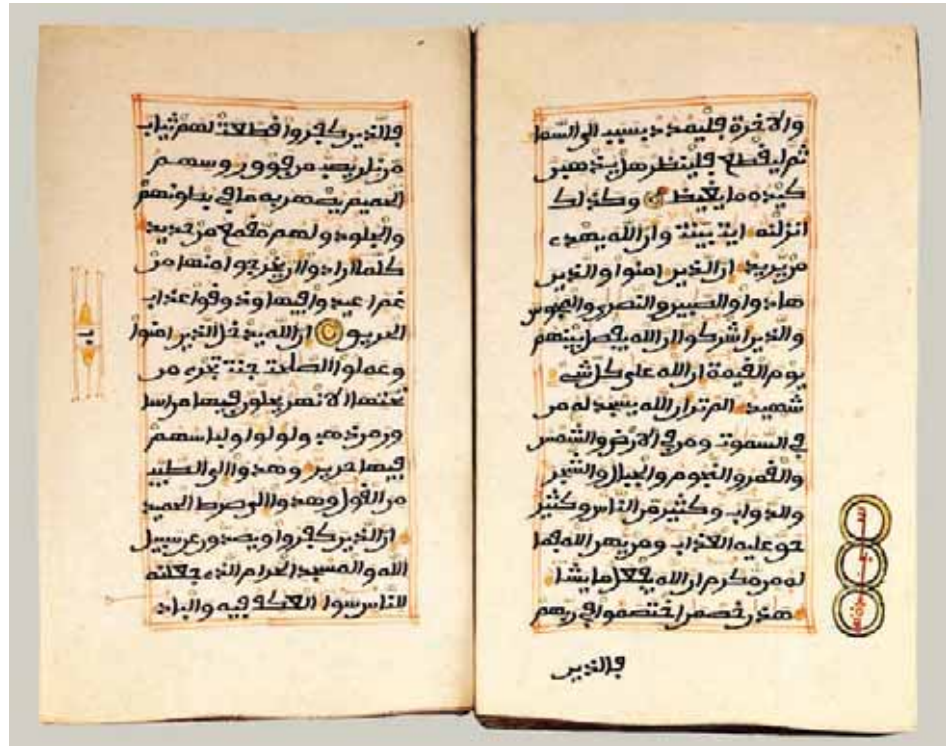 والاخرة فليمدد بسبب الى السما
ثم ليقطع فلينظر هل يذهبن
كيده ما يغيظ وكذلك
انزلنه ايت بينت وان الله يهدى
من يريد ان الذين امنوا والذين
هادوا والصبين والنصرى والمجوس
والذين اشركوا ان الله يفصل بينهم
يوم القيمة ان الله على كل شى
شهيد الم تر ان الله يسجد له من
في السموت ومن في الارض والشمس
والقمر والنجوم والجبال والشجر
والدواب وكثير من الناس وكثير
حق عليه العذاب ومن يهن الله فما
له من مكرم ان الله يفعل ما يشا
هذن خصمن اختصموا في ربهم
فالذين
فالذين كفروا قطعت لهم ثياب
من نار يصب من فوق روسهم
الحميم يصهر به ما في بطونهم
والجلود ولهم مقمع من حديد
كلما ارادوا ان يخرجوا منها من
غم اعيدوا فيها وذوقوا عذاب
الحريق ان الله يدخل الذين امنوا
وعملوا الصلحت جنت تجرى من
تحتها الانهر يحلون فيها من اسا
ور من ذهب ولولوا ولباسهم
فيها حرير وهدوا الى الطيب
من القول وهدوا الى صرط الحميد
ان الذين كفروا ويصدون عن سبيل
الله والمسجد الحرام الذى جعلنه
للناس سوا العكف فيه والباد